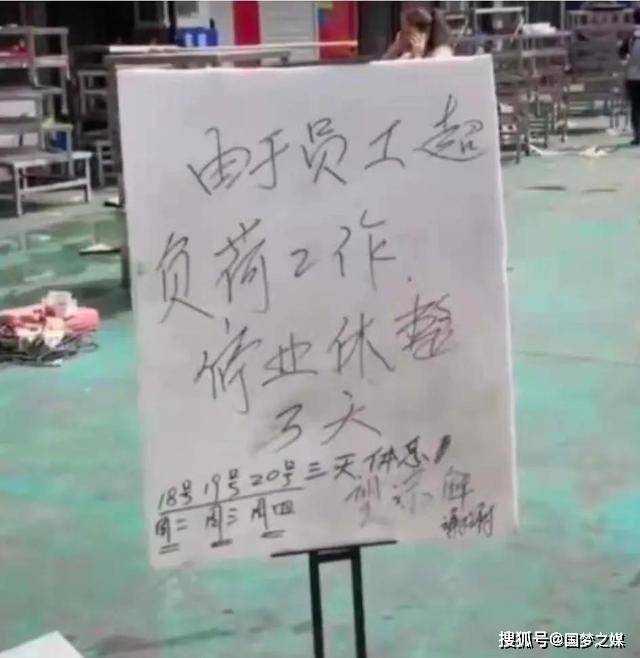 由于员工超
负荷工作.
停业休整
3天
18号19号20号三天休息!
周二 周三 周四
望谅解
搜狐号@国梦之媒